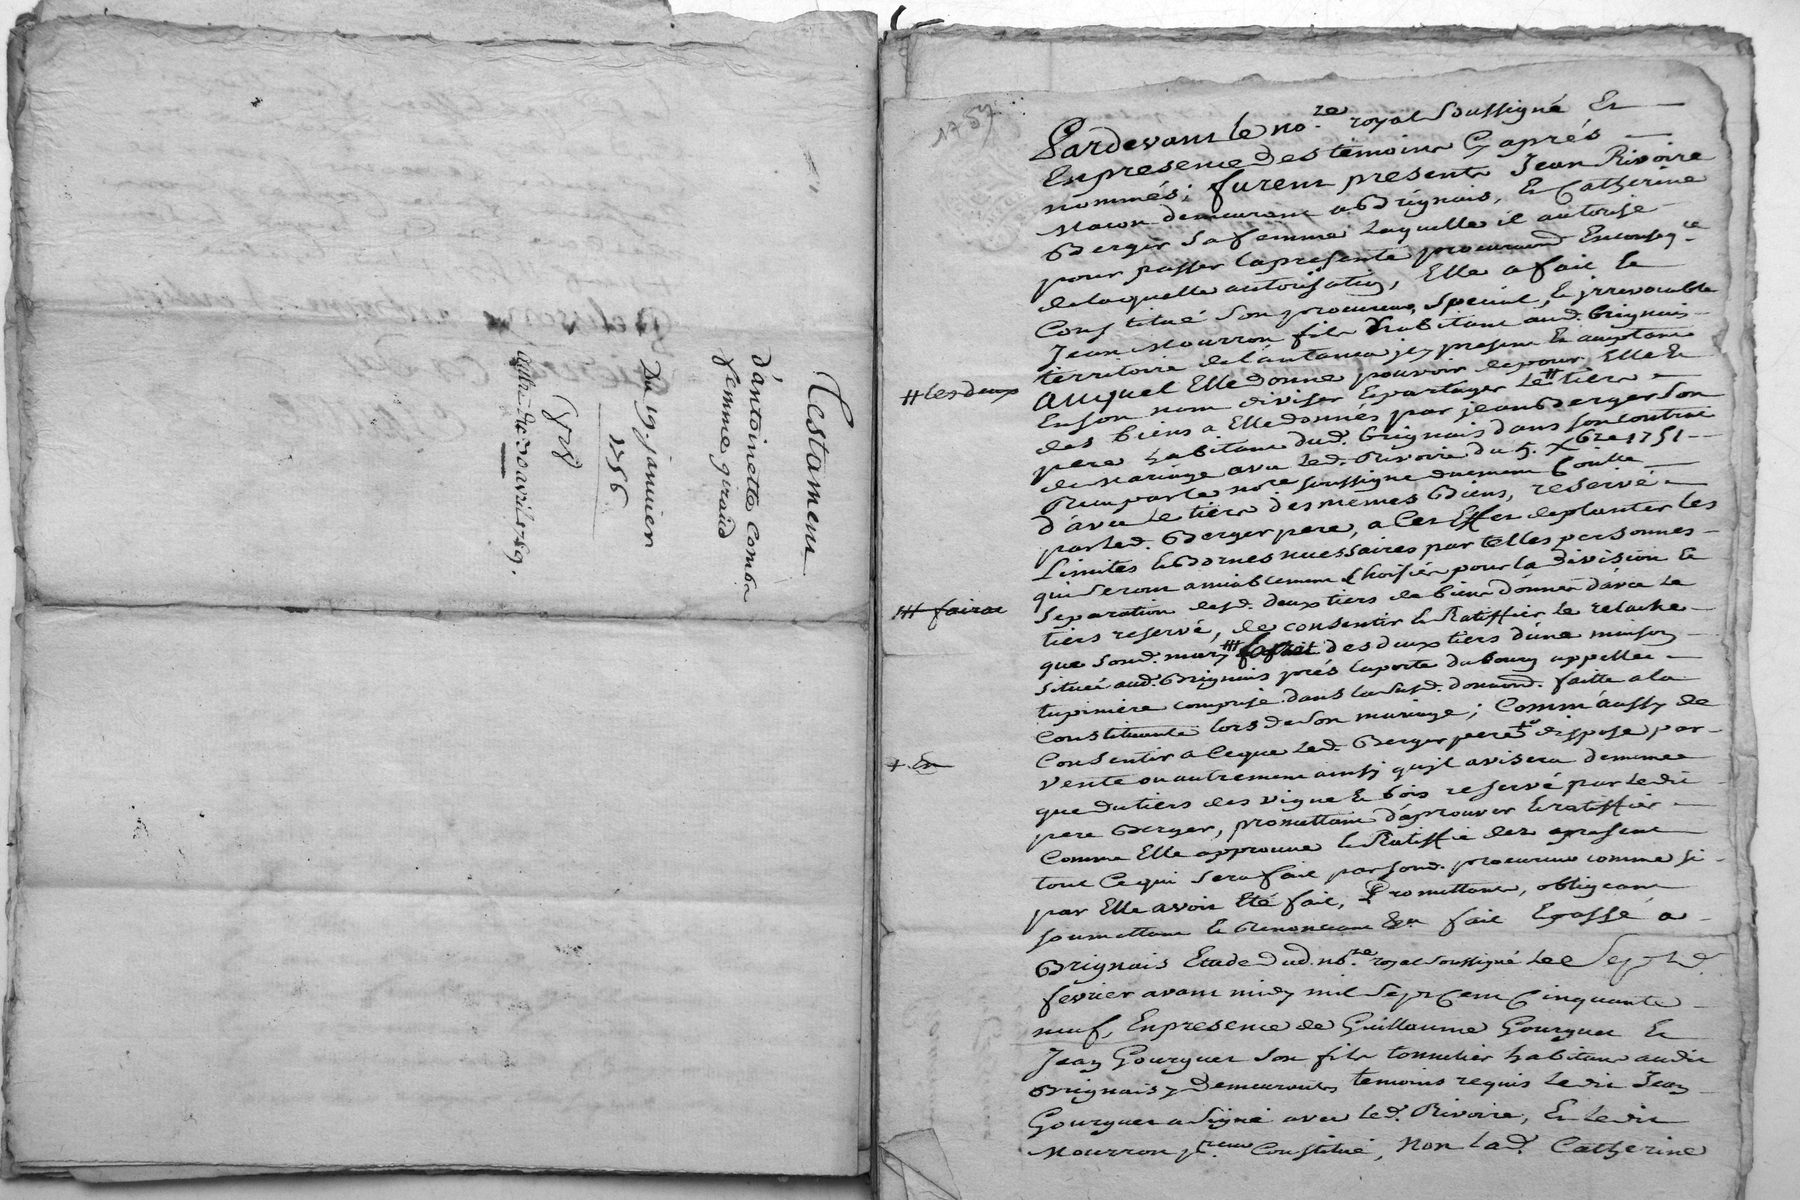 Testament
d'antoinette Comba
femme giraud
Du 19. janvier
1756
autre du 30 avril 1769.
1757
Pardevant le no.re royal soussigné Et
En presence des temoins Cy aprés
nommés; furent presents Jean Rivoire
Macon demeurant a Brignais, Et Catherine
Berger sa femme Laquelle il autorise
pour passer la presente procurâon En conseq.ce
de laquelle autorisation, Elle a fait Et
Constitué son procureur special, Et jrrevocable
Jean Mourron fils habitant aud. brignais
territoire de l'autance jcy present Et acceptant
Auquel Elle donne pouvoir de pour Elle Et
# les deux
En son nom diviser Et partager Le # tiers
des biens a Elle donnés par jean Berger son
pere habitant dud. brignais dans son contrat
de Mariage avec led. Rivoire du 9. Xbre 1751
Reçu par le no.re soussigné duement Con.lle
D'avec Le tiers des mêmes Biens, reservé
par led. Berger pere, a Cet Effet de planter les
Limites Et Bornes necessaires par telles personnes
qui seront amiablement Choisies pour la division Et
separation desd. deux tiers de bien donnés d'avec Le
## faitte
tiers reservé, de consentir Et Ratiffier le relache
que sond. mary ## des deux tiers d'une maison
située aud. Brignais près la porte du bourg appellée
tupiniere comprise dans la susd. donaôn. faitte a la
Constituante lors de son mariage; Comm'aussy de
+ En
Consentir a Ceque Led. Berger pere + dispose par
vente ou autrement ainsy qu'jl avisera demême
que du tiers des vigne Et bois reservé par ledit
pere Berger, promettant d'aprouver Et ratiffier
Comme Elle approuve Et Ratiffie dez apresent
tout Ce qui sera fait par sond. procureur comme si
par Elle avoit Eté fait, Promettant, obligeant
soumettant Et Renonceant &a fait Et passé a
Brignais Etude dud. no.re royal soussigné Le Sept.
fevrier avant midy mil sept Cent Cinquante
neuf, En presence de Guillaume Gourguet Et
Jean Gourguet son fils tonnelier habitant audit
Brignais y demeurants temoins requis Ledit Jean
Gourguet a signé avec led. Rivoire, Et ledit
Mourron pr.reur Constitué, Non lad. Catherine